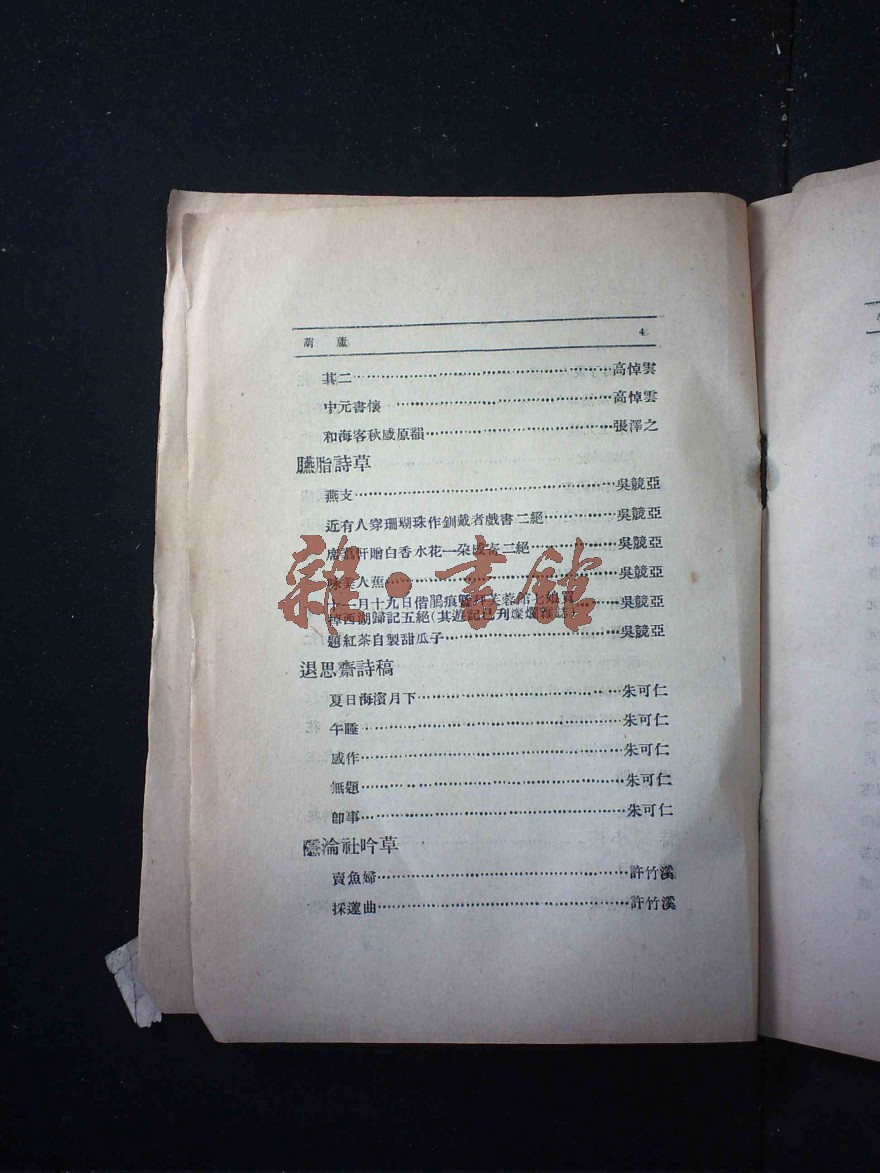 葫蘆 4
其二⋯⋯⋯⋯⋯⋯⋯⋯⋯⋯高悼雲
中元書懷⋯⋯⋯⋯⋯⋯⋯⋯⋯⋯高悼雲
和海客秋感原韻⋯⋯⋯⋯⋯⋯⋯⋯張澤之
臙脂詩草
燕支⋯⋯⋯⋯⋯⋯⋯⋯⋯⋯吳競亞
近有人穿珊瑚珠作釧戴者戲書二絕⋯⋯⋯⋯吳競亞
軒贈白香水花一朶感寄二絕⋯⋯⋯⋯吳競亞
咏美人蕉⋯⋯⋯⋯⋯⋯⋯⋯⋯⋯吳競亞
十一月十九日偕鵑痕暨芙蓉七娘買
棹西湖歸記五絕(其遊記已刋燦爛雜誌)⋯⋯⋯吳競亞
題紅茶自製甜瓜子⋯⋯⋯⋯⋯⋯⋯⋯吳競亞
退思齋詩稿
夏日海濱月下⋯⋯⋯⋯⋯⋯⋯⋯朱可仁
午睡⋯⋯⋯⋯⋯⋯⋯⋯⋯⋯朱可仁
感作⋯⋯⋯⋯⋯⋯⋯⋯⋯⋯朱可仁
無題⋯⋯⋯⋯⋯⋯⋯⋯⋯⋯朱可仁
卽事⋯⋯⋯⋯⋯⋯⋯⋯⋯⋯朱可仁
淪社吟草
賣魚婦⋯⋯⋯⋯⋯⋯⋯⋯⋯⋯許竹溪
採蓮曲⋯⋯⋯⋯⋯⋯⋯⋯⋯⋯許竹溪
雜·書館